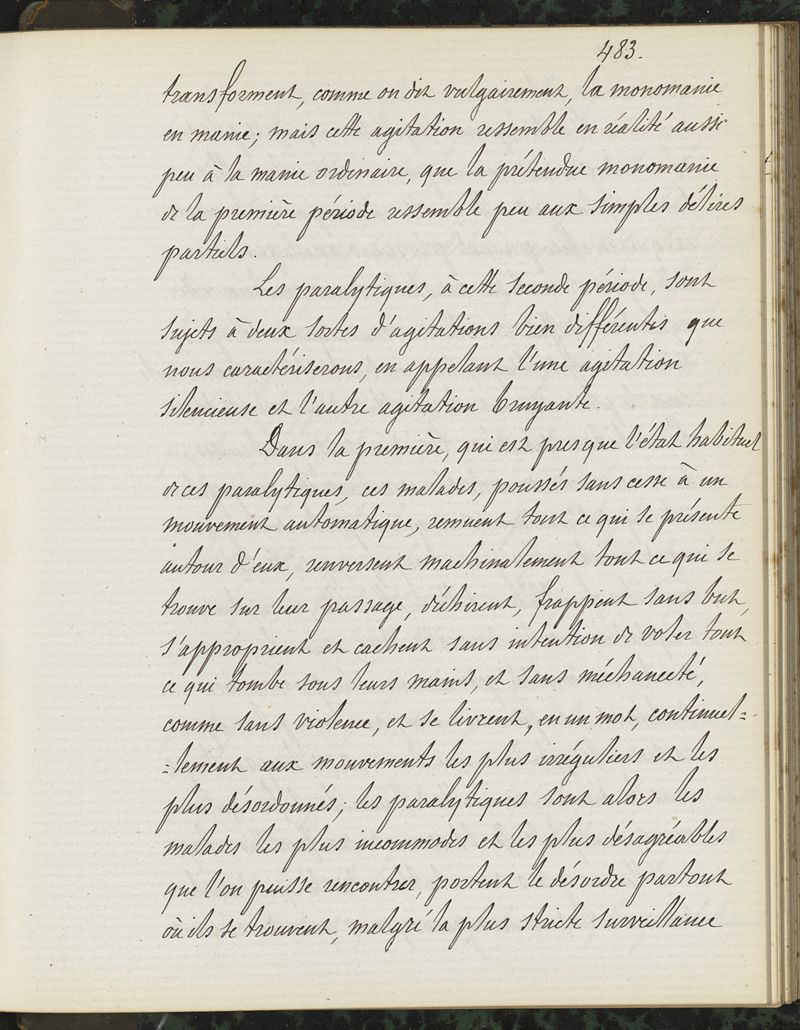 483.
transforment, comme on dit vulgairement, la monomanie
en manie; mais cette agitation ressemble en réalité aussi
peu à la manie ordinaire, que la prétendue monomanie
de la première période ressemble peu aux simples délires
partiels.
Les paralytiques, à cette seconde période, sont
sujets à deux sortes d'agitations bien différentes que
nous caractériserons, en appelant l'une agitation
silencieuse et l'autre agitation bruyante.
Dans la première, qui est presque l'état habituel
de ces paralytiques, ces malades, poussés sans cesse à un
mouvement automatique, remuent tout ce qui se présente
autour d'eux, renversent machinalement tout ce qui se
trouve sur leur passage, déchirent, frappent sans but,
s'approprient et cachent sans intention de voler tout
ce qui tombe sous leurs mains, et sans méchanceté,
comme sans violence, et se livrent, en un mot, continuel=
=lement aux mouvements les plus irréguliers et les
plus désordonnés; les paralytiques sont alors les
malades les plus incommodes et les plus désagréables
que l'on puisse rencontrer, portent le désordre partout
où ils se trouvent, malgré la plus stricte surveillance